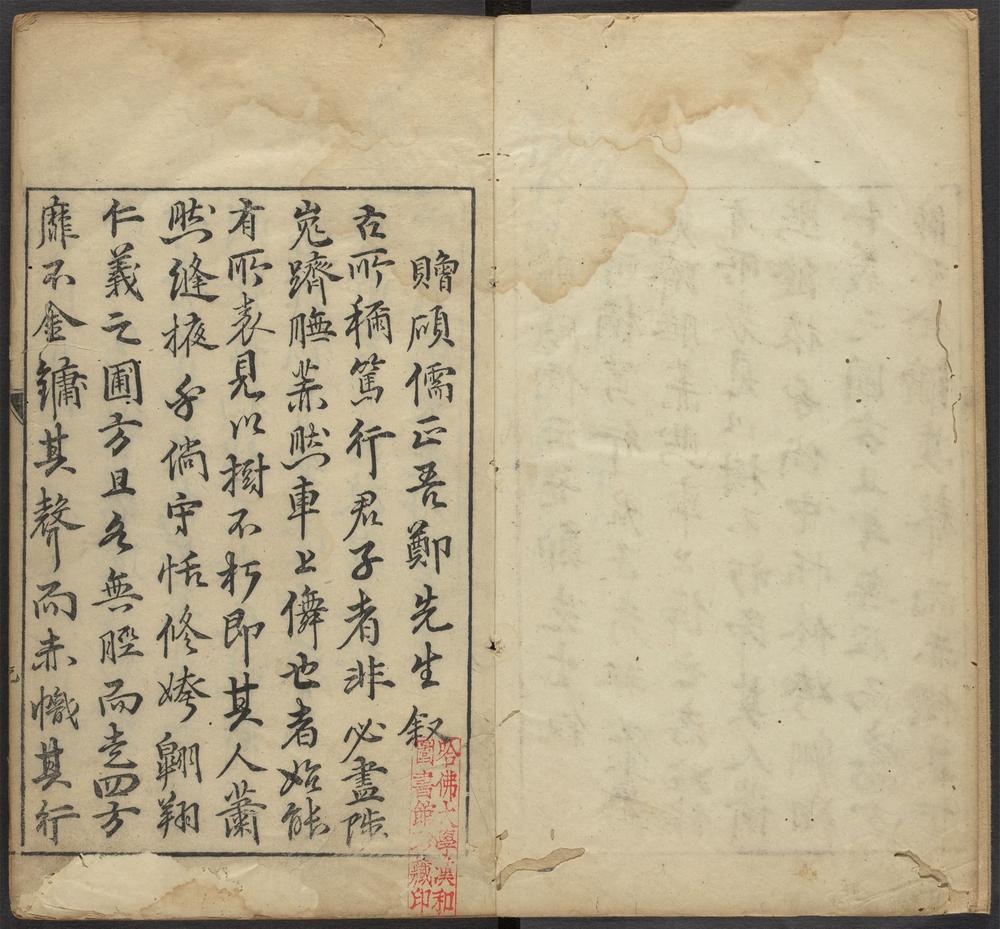 贈碩儒正吾鄭先生叙
古所稱篤行君子者非必盡陟
嵬躋膴業然車上儛也者始能
有所表見以樹不朽即其人蕭
然縫掖乎倘守恬修姱翺翔
仁義之圃方且名無脛而走四方
靡不金鏞其聲而赤幟其行
哈佛大學漢和
圖書館珍藏印